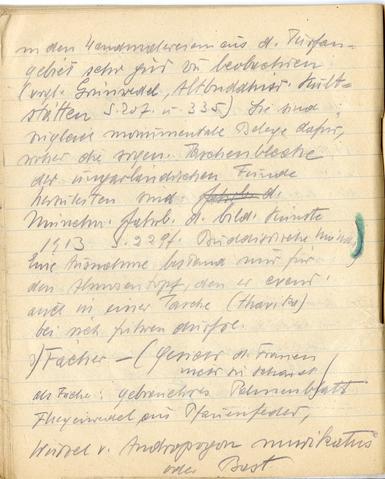 in den Wandmalereien aus d. Turfan-
gebiet sehr gut zu beobachten
(vergl. Grünwedel, Altbuddhist. Kult-
stätten S. 207. u 335) Sie sind
zugleich monumentale Belege dafür,
woher die sogen. Taschenbleche
der ungarländischen Funde
herleiten sind. d.
Münchn. Jahrb. d. bild. Künste
1913 S. 229f. Buddhistische Kunst.
Eine Ausnahme bestand nur für
den Almosentopf, den er event.
auch in einer Tasche (thavika)
bei sich führen durfte.
Fächer – ( d. Frauen
mehr
als Fächer: gebrauchtes Palmenblatt
Fliegenwedel aus Pfauenfeder,
Wurzel v. Andropogon murikatus
oder Bast